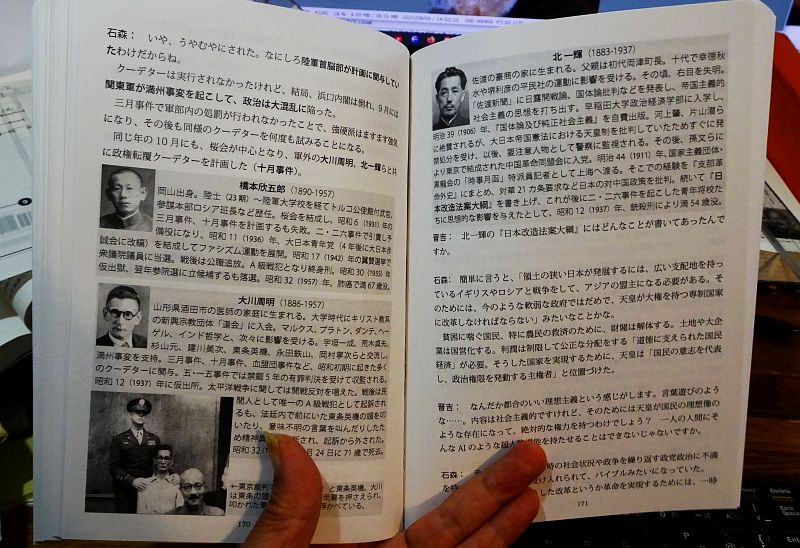 石森： いや、うやむやにされた。なにしろ陸軍首脳部が計画に関与してい
たわけだからね。
クーデターは実行されなかったけれど、結局、浜口内閣は倒れ、9月には
関東軍が満州事変を起こして、政治は大混乱に陥った。
三月事件で軍部内の処罰が行われなかったことで、強硬派はますます強気
になり、その後も同様のクーデターを何度も試みることになる。
同じ年の10月にも、桜会が中心となり、軍外の大川周明、北一輝らと共
に政権転覆クーデターを計画した（十月事件）。
橋本欣五郎（1890-1957）
岡山出身。陸士（23期）〜陸軍大学校を経てトルコ公使館付武官、
参謀本部ロシア班長など歴任。桜会を結成し、昭和6（1931）年の
三月事件、十月事件を計画するも失敗。二・二六事件で引責し予
備役になり、昭和11（1936）年、大日本青年党（4年後に大日本赤
誠会に改編）を結成してファシズム運動を展開。昭和17（1942）年の翼賛選挙で
衆議院議員に当選。戦後は公職追放。A級戦犯となり終身刑。昭和30（1955）年
仮出獄、翌年参院選に立候補するも落選。昭和32（1957）年、肺癌で満67歳没。
大川周明（1886-1957）
山形県酒田市の医師の家庭に生まれる。大学時代にキリスト教系
の新興宗教団体「道会」に入会。マルクス、プラトン、ダンテ、ヘー
ゲル、インド哲学と、次々に影響を受ける。宇垣一成、荒木貞夫、
杉山元、建川美次、東条英機、永田鉄山、岡村寧次らと交流し、
満州事変を支持。三月事件、十月事件、血盟団事件など、昭和初期に起きた多く
のクーデターに関与。五・一五事件では禁錮5年の有罪判決を受けて収監される。
昭和12（1937）年に仮出所。太平洋戦争に関しては開戦反対を唱えた。戦後は民
間人として唯一のA級戦犯として起訴され
るも、法廷内で前にいた東条英機の頭を叩
いたり、意味不明の言葉を叫んだりしたた
め精神異 断され、起訴から外された。
昭和32 月24日に71歳で死去。
←東京裁判で と東条英機。大川
は東条の頭 両肩を押さえられ、
叩かれた東 浮かべている。
170
北一輝（1883-1937）
佐渡の豪商の家に生まれる。父親は初代両津町長。十代で幸徳秋
水や堺利彦の平民社の運動に影響を受ける。その頃、右目を失明。
「佐渡新聞」に日露開戦論、国体論批判などを発表し、帝国主義的
社会主義の思想を打ち出す。早稲田大学政治経済学部に入学し、
明治39（1906）年、『国体論及び純正社会主義』を自費出版。河上肇、片山潜ら
に絶賛されるが、大日本帝国憲法における天皇制を批判していたためすぐに発
禁処分を受け、以後、要注意人物として警察に監視される。その後、孫文らに
より東京で結成された中国革命同盟会に入党。明治44（1911）年、国家主義団体・
黒龍会の「時事月函」特派員記者として上海へ渡る。そこでの経験を『支那革
命外史』にまとめ、対華21カ条要求など日本の対中国政策を批判。続いて『日
本改造法案大綱』を書き上げ、これが後に二・二六事件を起こした青年将校た
ちに思想的な影響を与えたとして、昭和12（1937）年、銃殺刑により満54歳没。
音吉： 北一輝の『日本改造法案大綱』にはどんなことが書いてあったんで
すか。
石森： 簡単に言うと、「領土の狭い日本が発展するには、広い支配地を持っ
ているイギリスやロシアと戦争をして、アジアの盟主になる必要がある。そ
のためには、今のような軟弱な政府ではだめで、天皇が大権を持つ専制国家
に改革しなければならない」みたいなことかな。
貧困に喘ぐ国民、特に農民の救済のために、財閥は解体する。土地や大企
業は国営化する。利潤は制限して公正な分配をする「道徳に支えられた国民
経済」が必要。そうした国家を実現するために、天皇は「国民の意志を代表
し、政治権限を発動する主権者」と位置づけた。
音吉： なんだか都合のいい理想主義という感じがします。言葉遊びのよう
な……。内容は社会主義的ですけれど、そのためには天皇が国民の理想像の
ような存在になって、絶対的な権力を持つわけでしょう？ 一人の人間にそ
んなAIのような超人 能を持たせることはできないじゃないですか。
石森： 時の社会状況や政争を繰り返す政党政治に不満
を持 受け入れられて、バイブルみたいになっていた。
した改革というか革命を実現するためには、一時
171